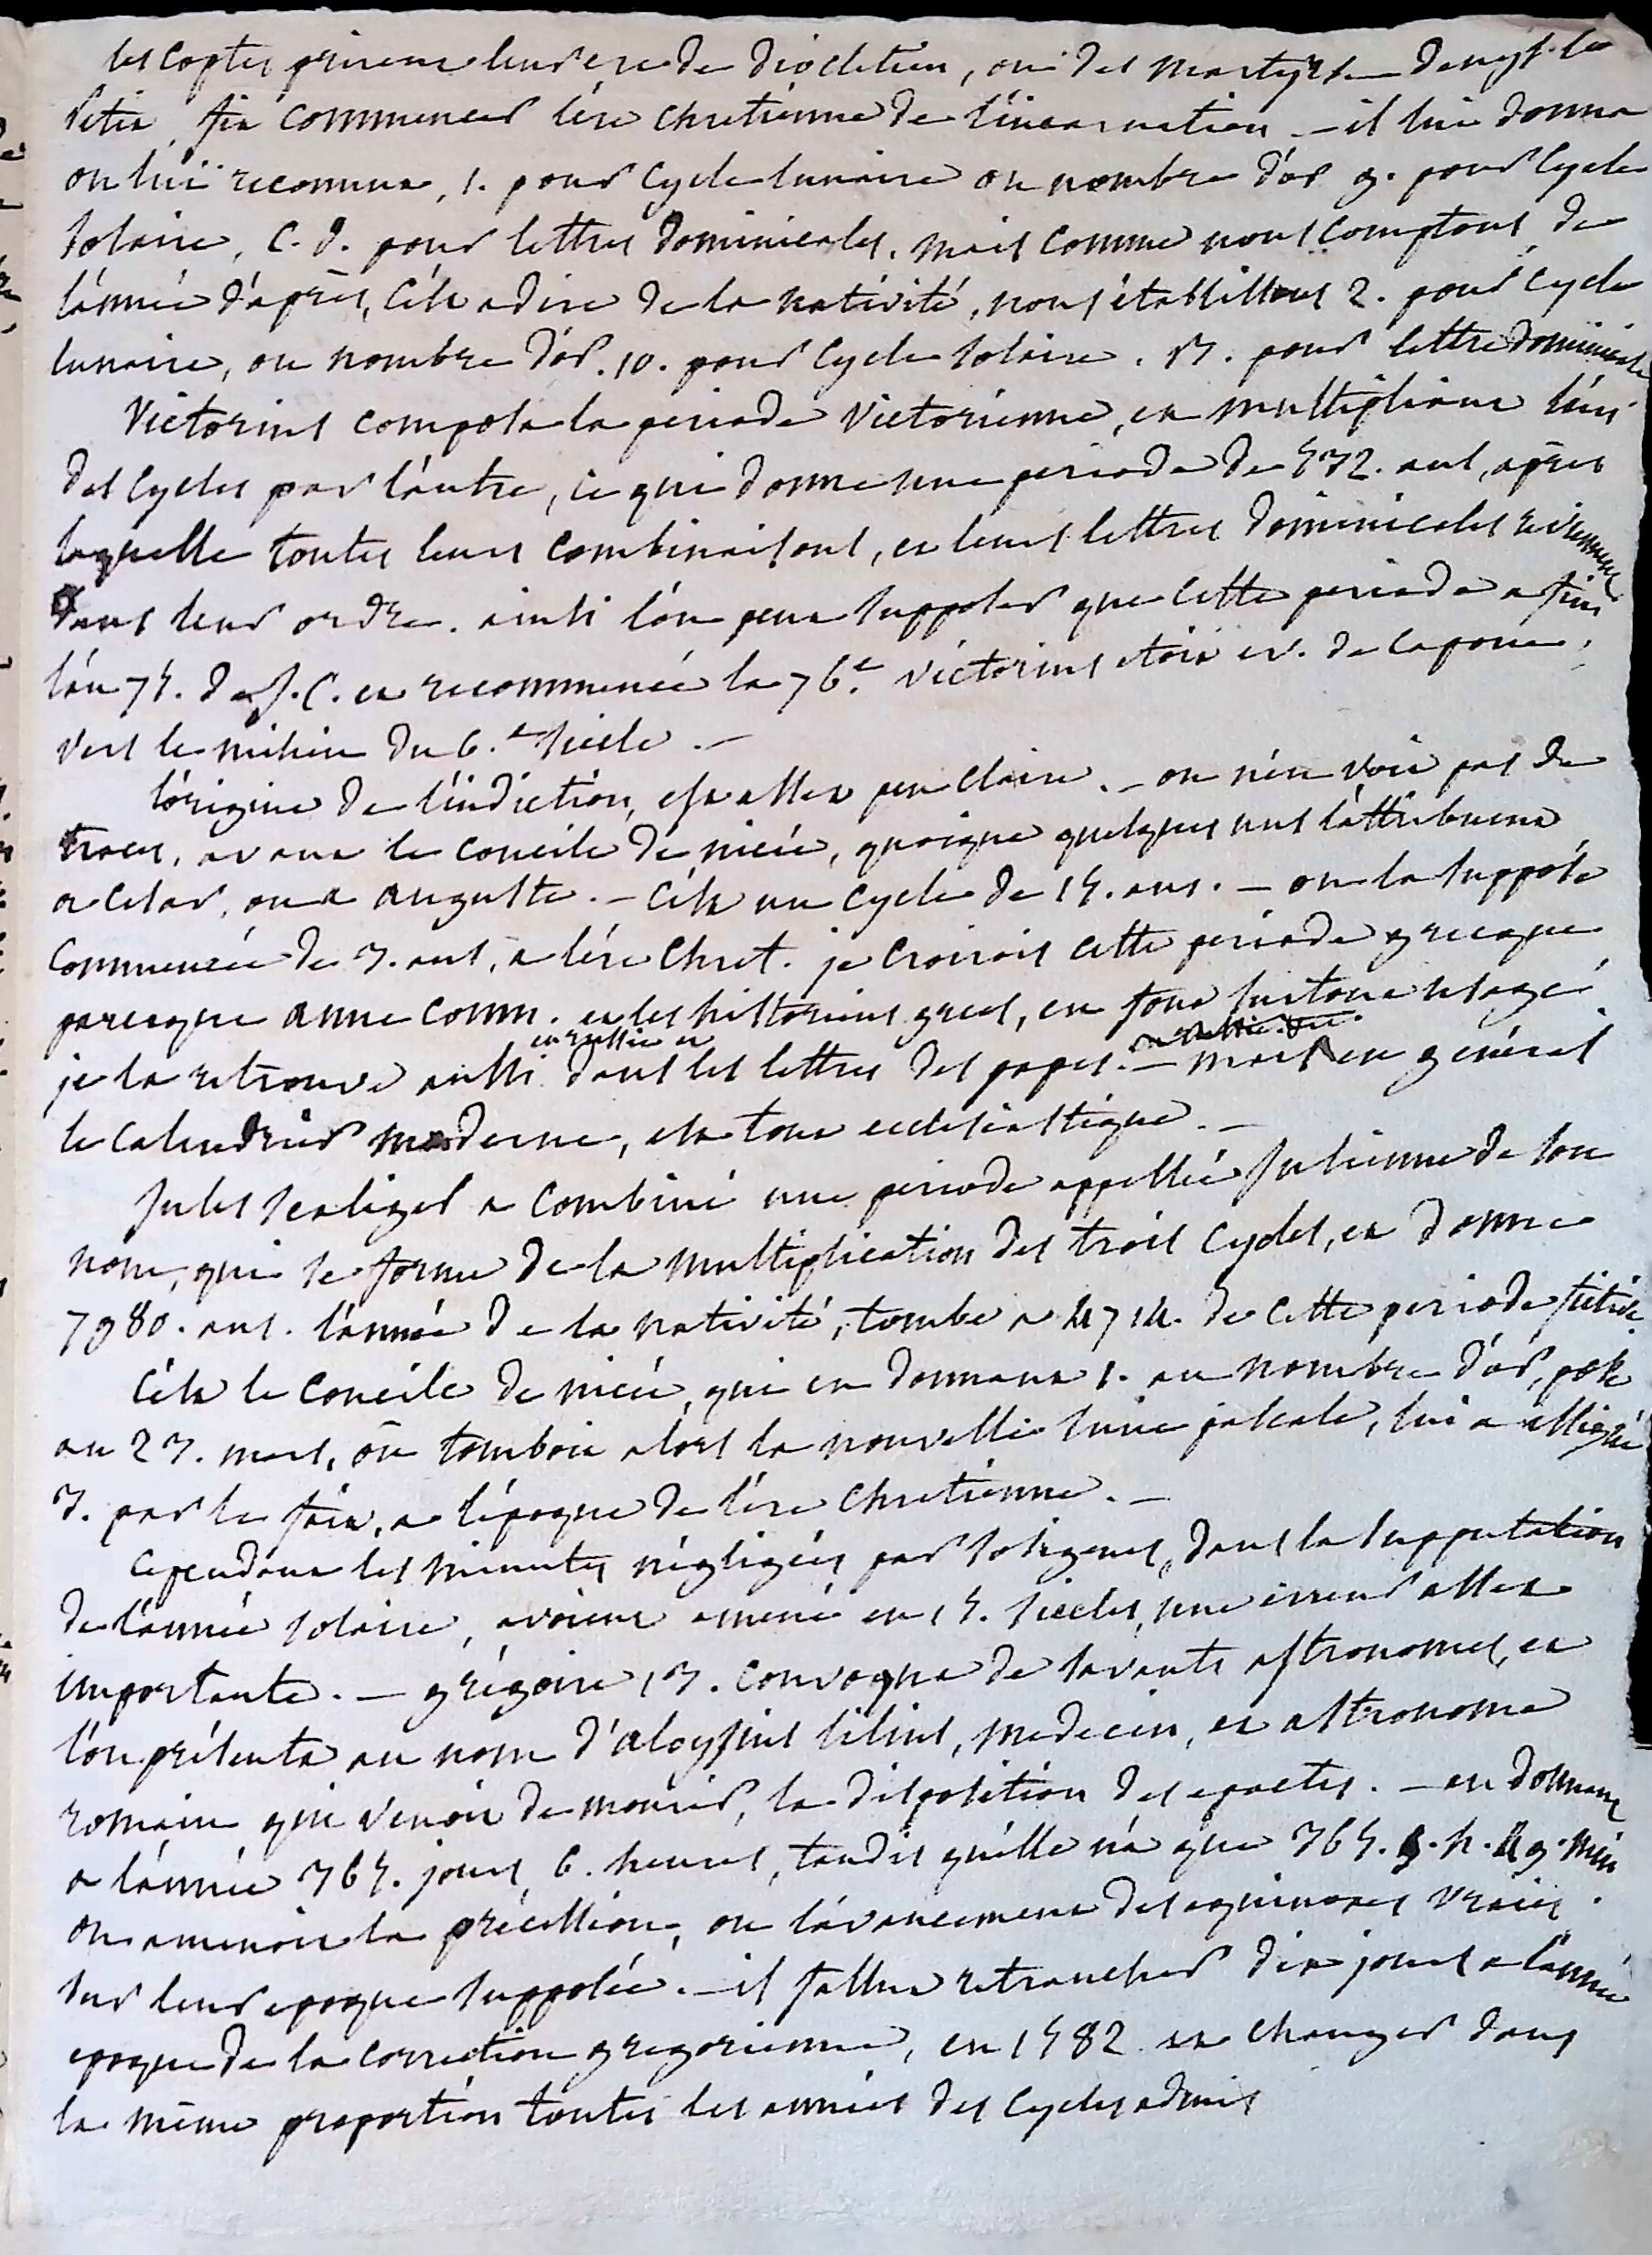 les Coptes prirent leur ere de dioclétien, ou des martyrs. — Denys le
Petit, fit commencer l'ére chretiénne de l'incarnation. — il lui donna
on lui reconnut, 1. pour Cycle lunaire ou nombre d'or 9. pour Cycle
solaire, C. d. pour lettres dominicales. mais comme nous comptons de
l'année d'après, c'est a dire de la nativité, nous établissons 2. pour Cycle
lunaire, ou nombre d'or. 10. pour Cycle solaire. B. pour lettre dominicale
Victorius composa la periode Victorienne, en multipliant l'un
des Cycles par l'autre, ce qui donne une periode de 532. ans, après
laquelle toutes leurs combinaisons, et leurs lettres dominicales reviennent
dans leur ordre. ainsi l'on peut supposer que cette periode a fini
l'an 75. de J. C. et recommencé la 76.e victorius etoit ev. de Capoue,
vers le milieu du 6.e siècle. —
l'origine de l'indiction, est assez peu claire. — on n'en voit pas de
traces, avant le concile de nicée, quoique quelques uns l'attribuent
a César, ou a auguste. — C'est un cycle de 15. ans. — on la suppose
Commencée de 3. ans, a l'ére chret. je croirois cette periode grecque
parceque anne Comn. et les historiens grecs, en font surtout usage.
je la retrouve aussi en russie et dans les lettres des papes. — mais en général
le Calendrier moderne, est tout ecclésiastique. —
Jules Scaliger a combiné une periode appellée Julienne de son
nom, qui se forme de la multiplication des trois Cycles, et donne
7980. ans. l'année de la nativité, tombe a 4714. de cette periode fictive.
C'est le Concile de nicée, qui en donnant 1. au nombre d'or, posé
au 23. mars, où tomboit alors la nouvelle lune pascale, lui a assigné
3. par le fait, a l'époque de l'ére chretiénne. —
Cependant les minutes négligées par Sosigenes, dans la supputation
de l'année solaire, avoient amené en 15. siecles, une erreur assez
importante. — grégoire 13. convoqua de savants astronomes, et
l'on présenta au nom d'aloysius lilius, medecin, et astronome
romain qui venoit de mourir, la disposition des epactes. — en donnant
a l'année 365. jours, 6. heures, tandis qu'elle n'a que 365. 5. h. 49. min.
on amenoit la précession, ou l'avancement des equinoxes vrais
sur leur epoque supposée. — il fallut retrancher dix jours a l'année
epoque de la correction gregorienne, en 1582. et changer dans
la même proportion toutes les années des Cycles admis